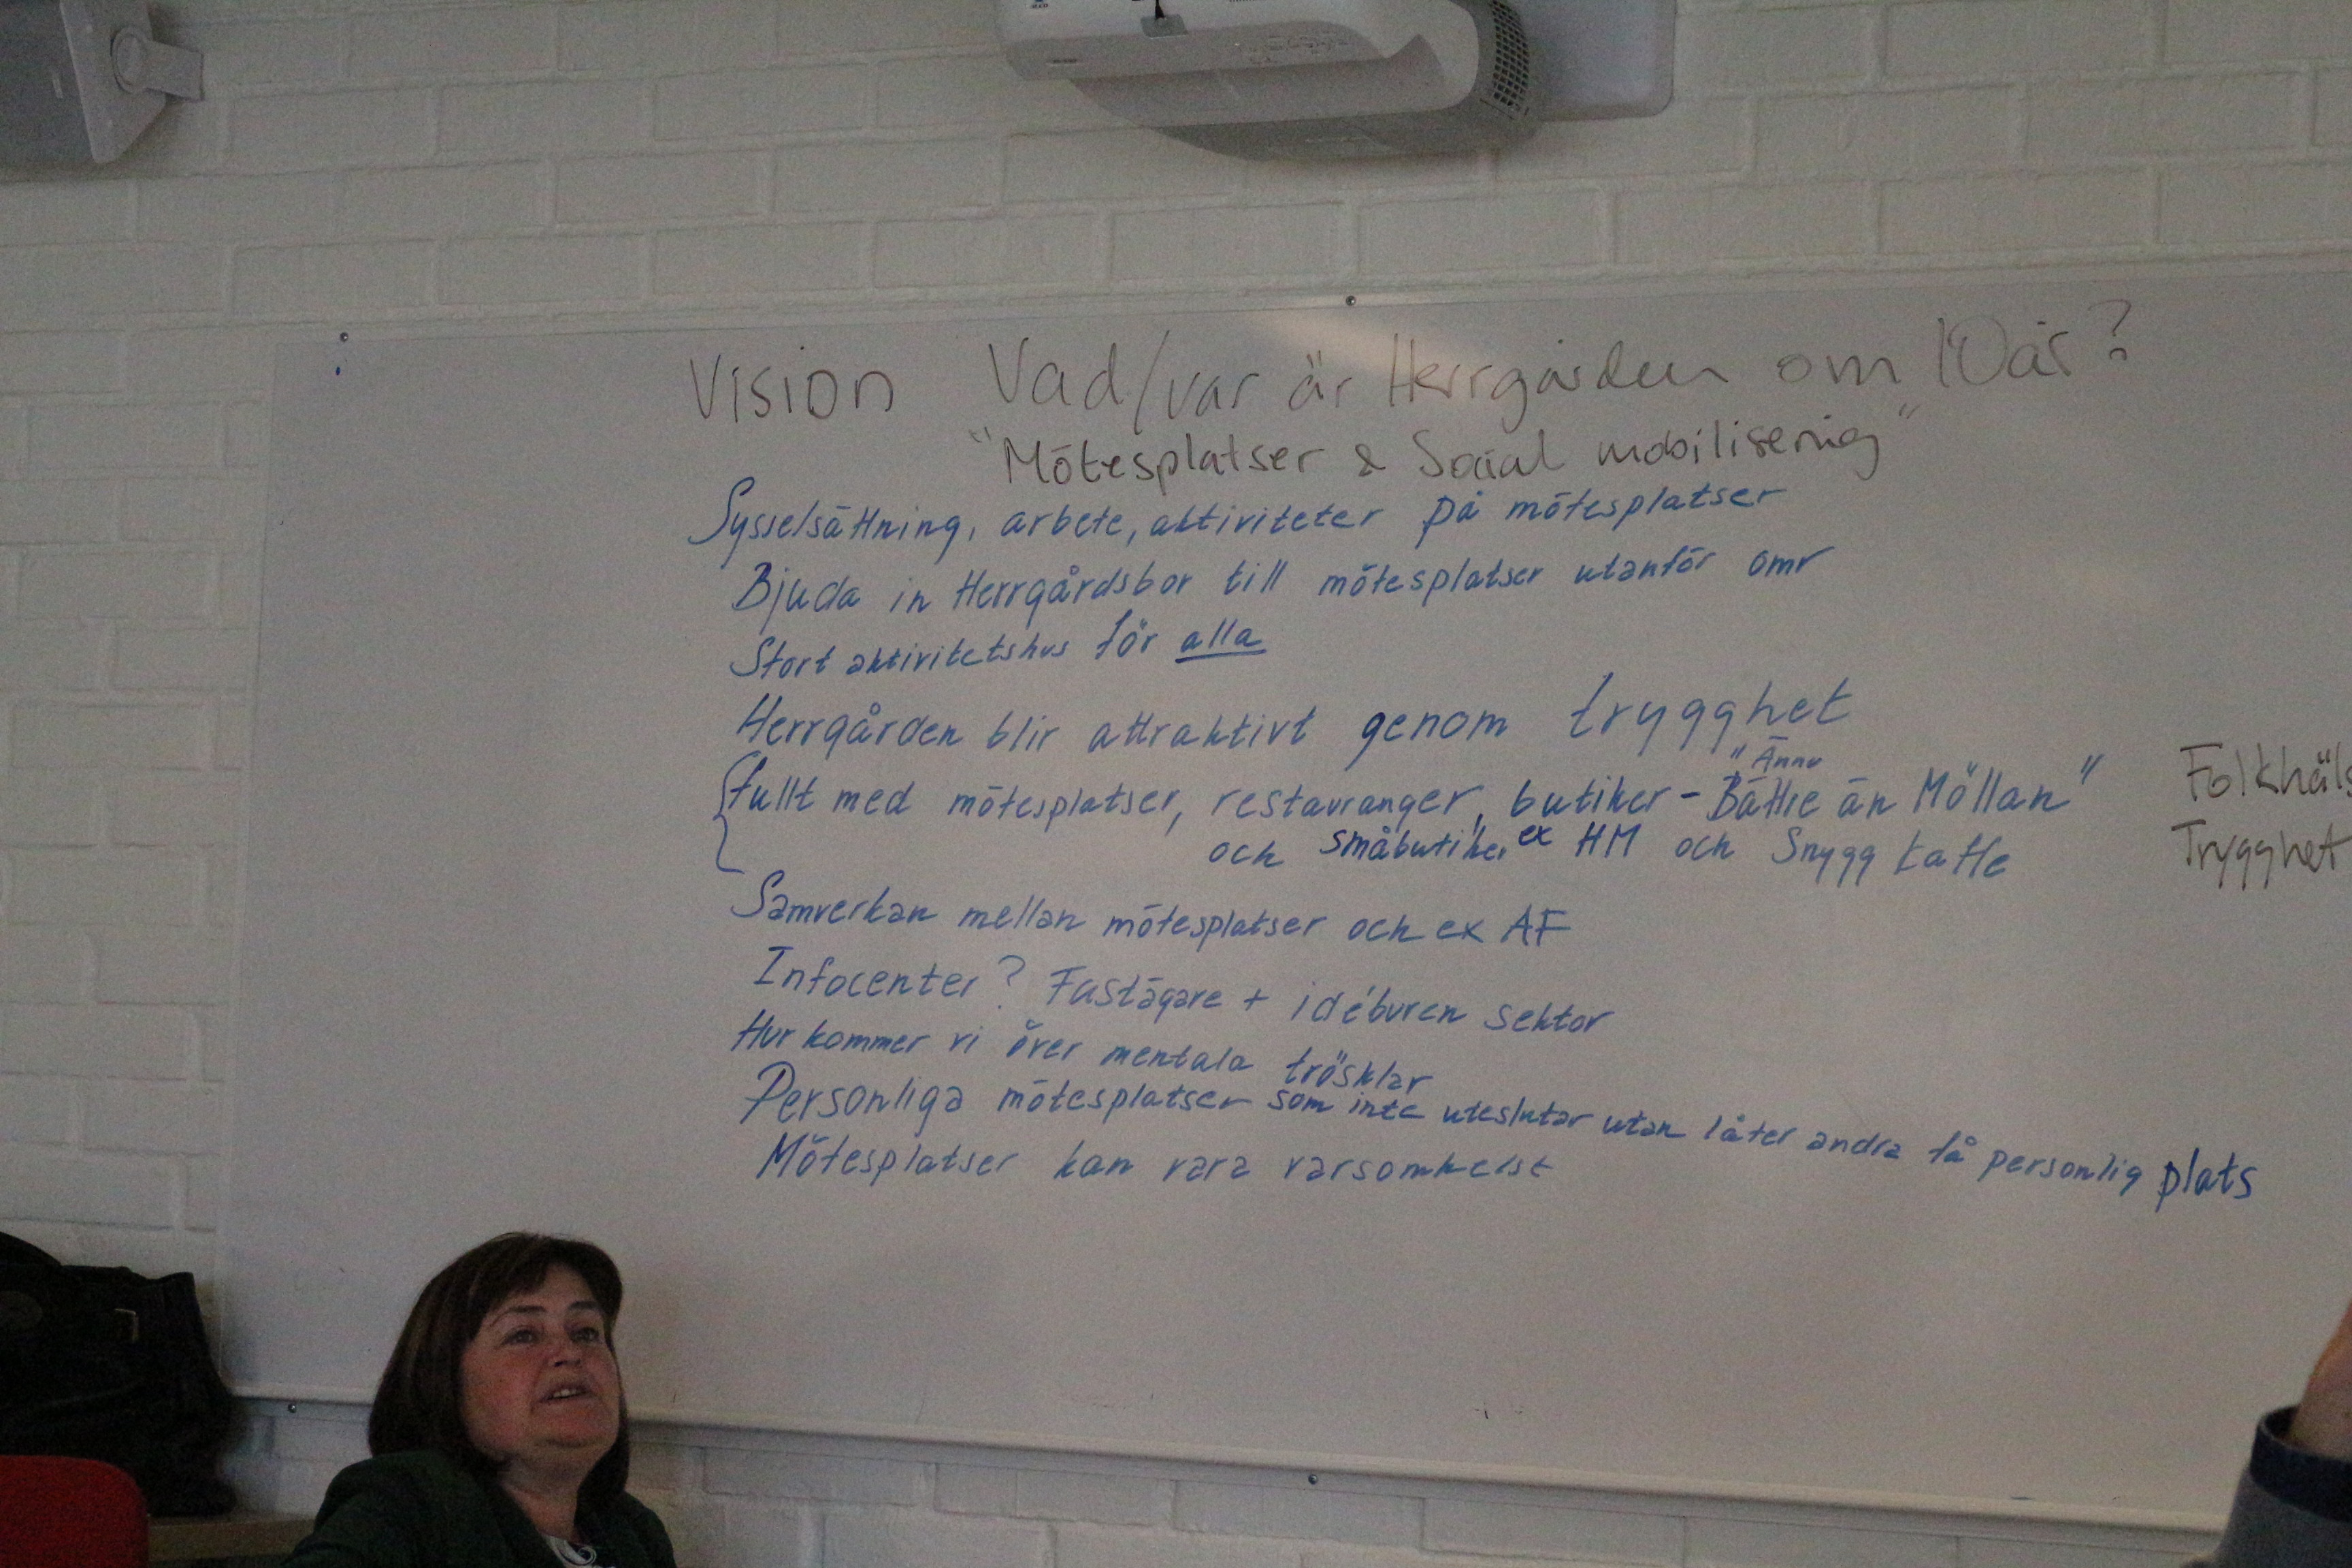 Vision Vad/var är Herrgården om 10 år?
"Mötesplatser & Social mobilisering"
Sysselsättning, arbete, aktiviteter på mötesplatser
Bjuda in Herrgårdsbor till mötesplatser utanför omr
Stort aktivitetshus för alla
Herrgården blir attraktivt genom trygghet
"Ännu
Fullt med mötesplatser, restauranger, butiker - Bättre än Möllan"
och småbutiker ex HM och Snygg Kaffe
Folkhäls
Trygghet
Samverkan mellan mötesplatser och ex AF
Infocenter? Fastägare + idéburen sektor
Hur kommer vi över mentala trösklar
Personliga mötesplatser som inte uteslutar utan låter andra få personlig plats
Mötesplatser kan vara varsomhelst